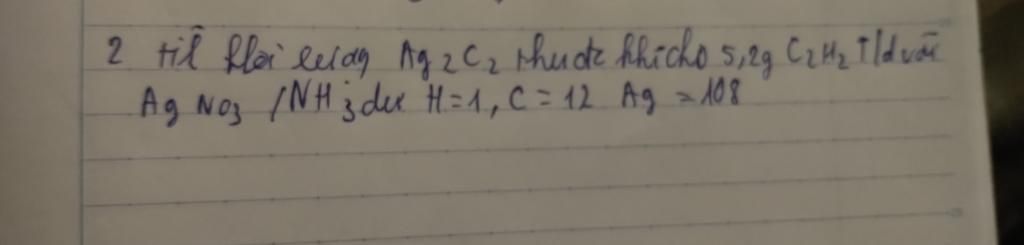 2 tií khối lượng Ag2C2 thu đc khi cho 5,2g C2H2 T/d với
Ag NO3 /NH3 dư H=1, C=12 Ag=108